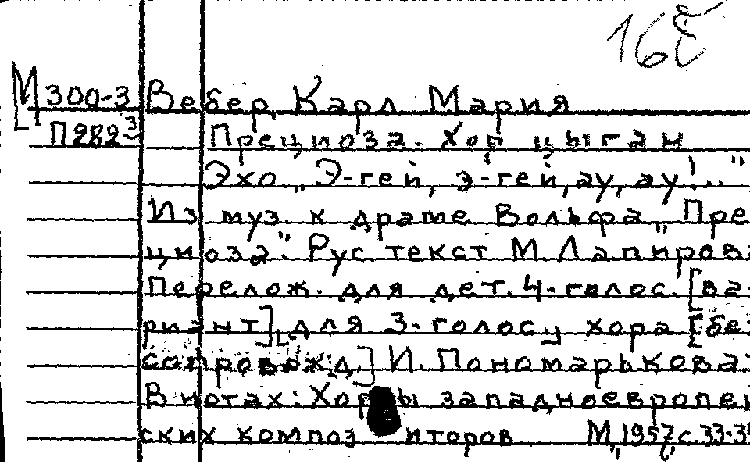 16
М 300-3 Вебер, Карл Мария
П2823 Прециоза. Хор цыган
Эхо „Э-гей, э-гей, ау, ау!..."
Из муз. к драме Вольфа „Пре
циоза". Рус. текст М. Лапирова
Перелож. для дет. 4-голос. [ва-
риант] для 3-голосн. хора [без
сопровожд.] И. Пономарькова.
В нотах: Хоры западноевропей
ских композиторов М, 1957, с. 33-